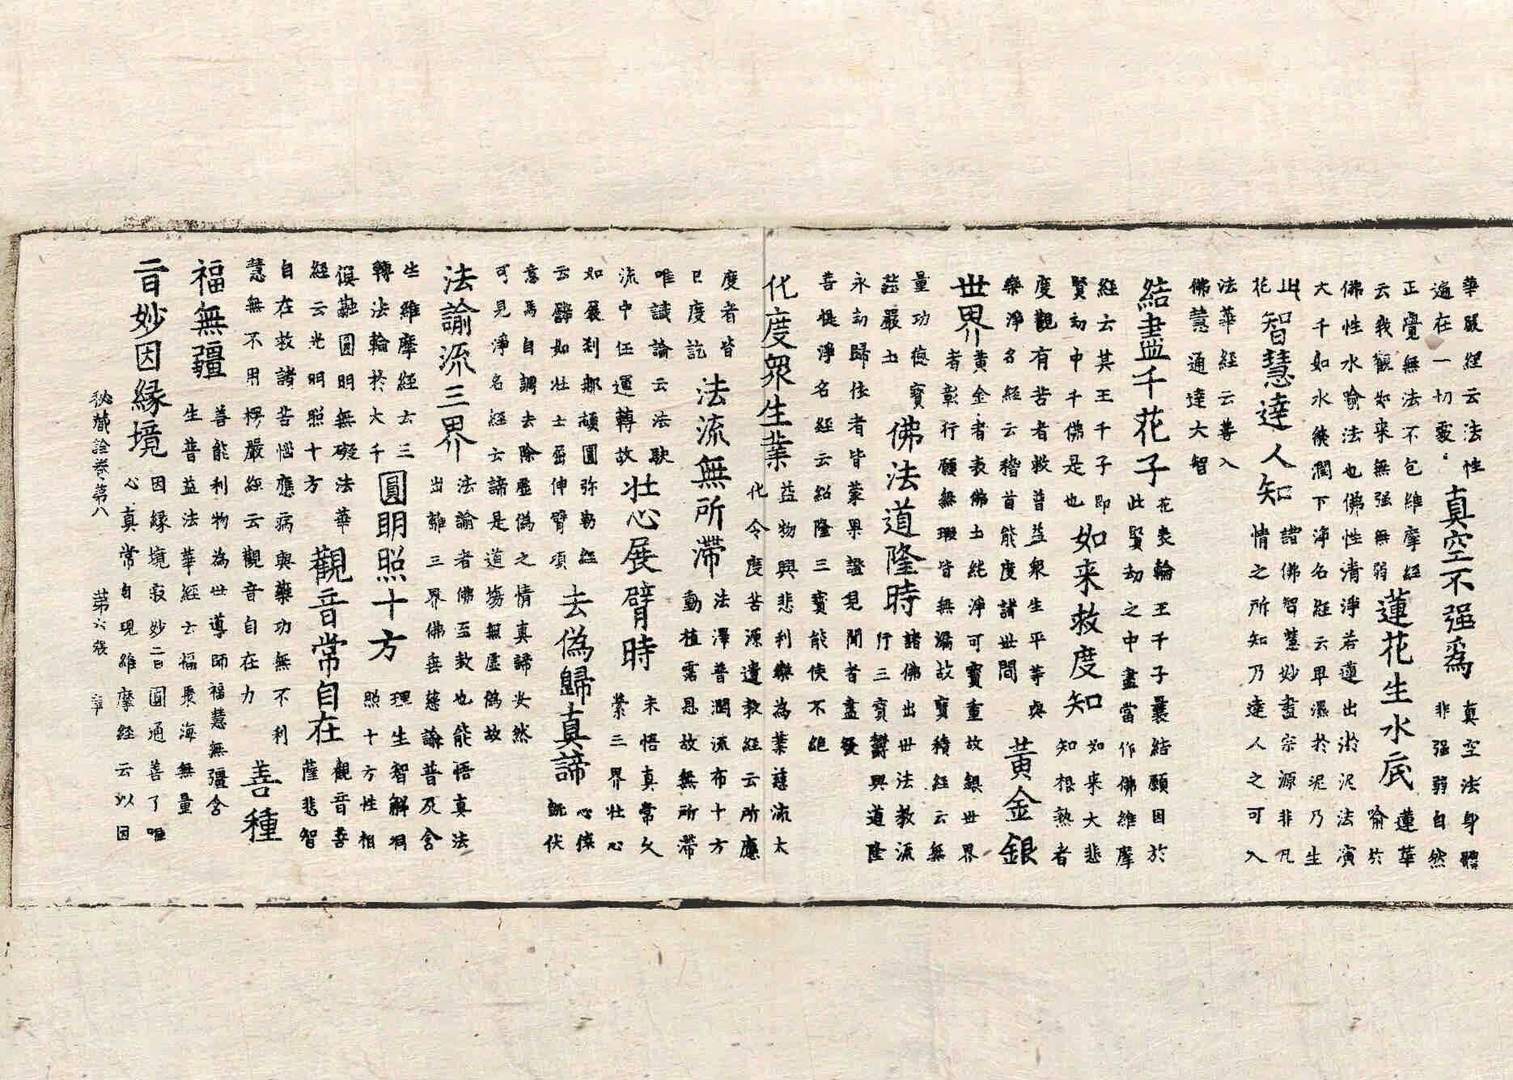 華嚴經云法性
遍在一切處
真空不强為
真空法身體
非强弱自然
正覺無法不包維摩經
云我觀如來無强無弱
蓮花生水底
蓮華
喻於
佛性水喻法也佛性清淨若蓮出淤泥法演
大千如水能潤下淨名經云卑濕於泥乃生
此
花
智慧達人知
諸佛智慧妙盡宗源非凡
情之所知乃達人之可入
法華經云善入
佛慧通達大智
結盡千花子
花表輪王千子曩結願因於
此賢劫之中盡當作佛維摩
經云其王千子即
賢劫中千佛是也
如来救度知
如来大悲
知根熟者
度觀有苦者救普益衆生平等與
樂淨名經云稽首能度諸世間
黃金銀
世界
黃金者表佛土純淨可寶重故銀世界
者彰行願無瑕皆無漏故寶積經云無
量功德寶
莊嚴土
佛法道隆時
諸佛出世法教流
行三寶鬱興道隆
永劫歸依者皆蒙果證見聞者盡發
菩提淨名經云紹隆三寶能使不絕
化度眾生業
益物興悲利樂為業慈流太
化令度苦源遺教經云所應
度者皆
已度訖
法流無所滯
法澤普潤流布十方
動植霑恩故無所滯
唯識論云法駛
流中任運轉故
壯心展臂時
未悟真常久
縈三界壯心
如展刹那頓圓弥勒經
云譬如壯士屈伸臂頃
去偽歸真諦
心猿
既伏
意馬自調去除虛偽之情真諦必然
可見淨名經云諦是道場無虛偽故
法諭流三界
法諭者佛至教也能悟真法
出離三界佛垂慈諭普及含
生維摩經云三
轉法輪於大千
圓明照十方
理生智解洞
照十方性相
俱融圓明無礙法華
經云光明照十方
觀音常自在
觀音菩
薩悲智
自在救諸苦惱應病與藥功無不利
慧無不用楞嚴經云觀音自在力
善種
福無疆
善能利物為世導師福慧無彊含
生普益法華經云福聚海無量
音妙因縁境
因緣境寂妙音圓通善了唯
心真常自現維摩經云以因
秘藏詮卷第八 第六張 章